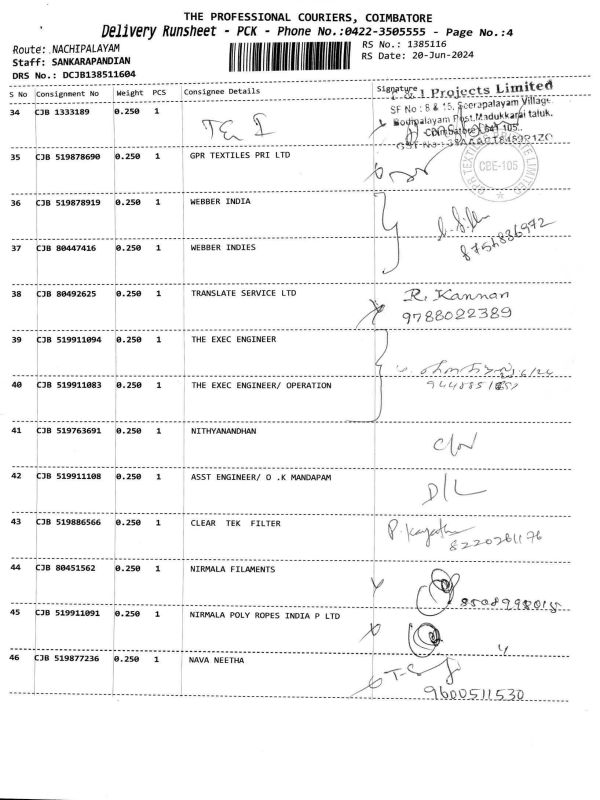 THE PROFESSIONAL COURIERS, COIMBATORE
Delivery Runsheet - PCK - Phone No.:0422-3505555 - Page No.:4
Route: NACHIPALAYAM
RS No.: 1385116
Staff: SANKARAPANDIAN
RS Date: 20-Jun-2024
DRS No.: DCJB138511604
S No Consignment No Weight PCS Consignee Details Signature
34 CJB 1333189 0.250 1
Projects Limited
SF No : 8 & 15, Seerapalayam Village
Bodipalayam Post, Madukkarai taluk.
Coimbatore 641 105.
35 CJB 519878690 0.250 1 GPR TEXTILES PRI LTD
CBE-105
36 CJB 519878919 0.250 1 WEBBER INDIA
8754836972
37 CJB 80447416 0.250 1 WEBBER INDIES
38 CJB 80492625 0.250 1 TRANSLATE SERVICE LTD R. Kannan
9788022389
39 CJB 519911094 0.250 1 THE EXEC ENGINEER
40 CJB 519911083 0.250 1 THE EXEC ENGINEER/ OPERATION
41 CJB 519763691 0.250 1 NITHYANANDHAN
42 CJB 519911108 0.250 1 ASST ENGINEER/ O .K MANDAPAM D/L
43 CJB 519886566 0.250 1 CLEAR TEK FILTER
8220261176
44 CJB 80451562 0.250 1 NIRMALA FILAMENTS
45 CJB 519911091 0.250 1 NIRMALA POLY ROPES INDIA P LTD
46 CJB 519877236 0.250 1 NAVA NEETHA
9600511530